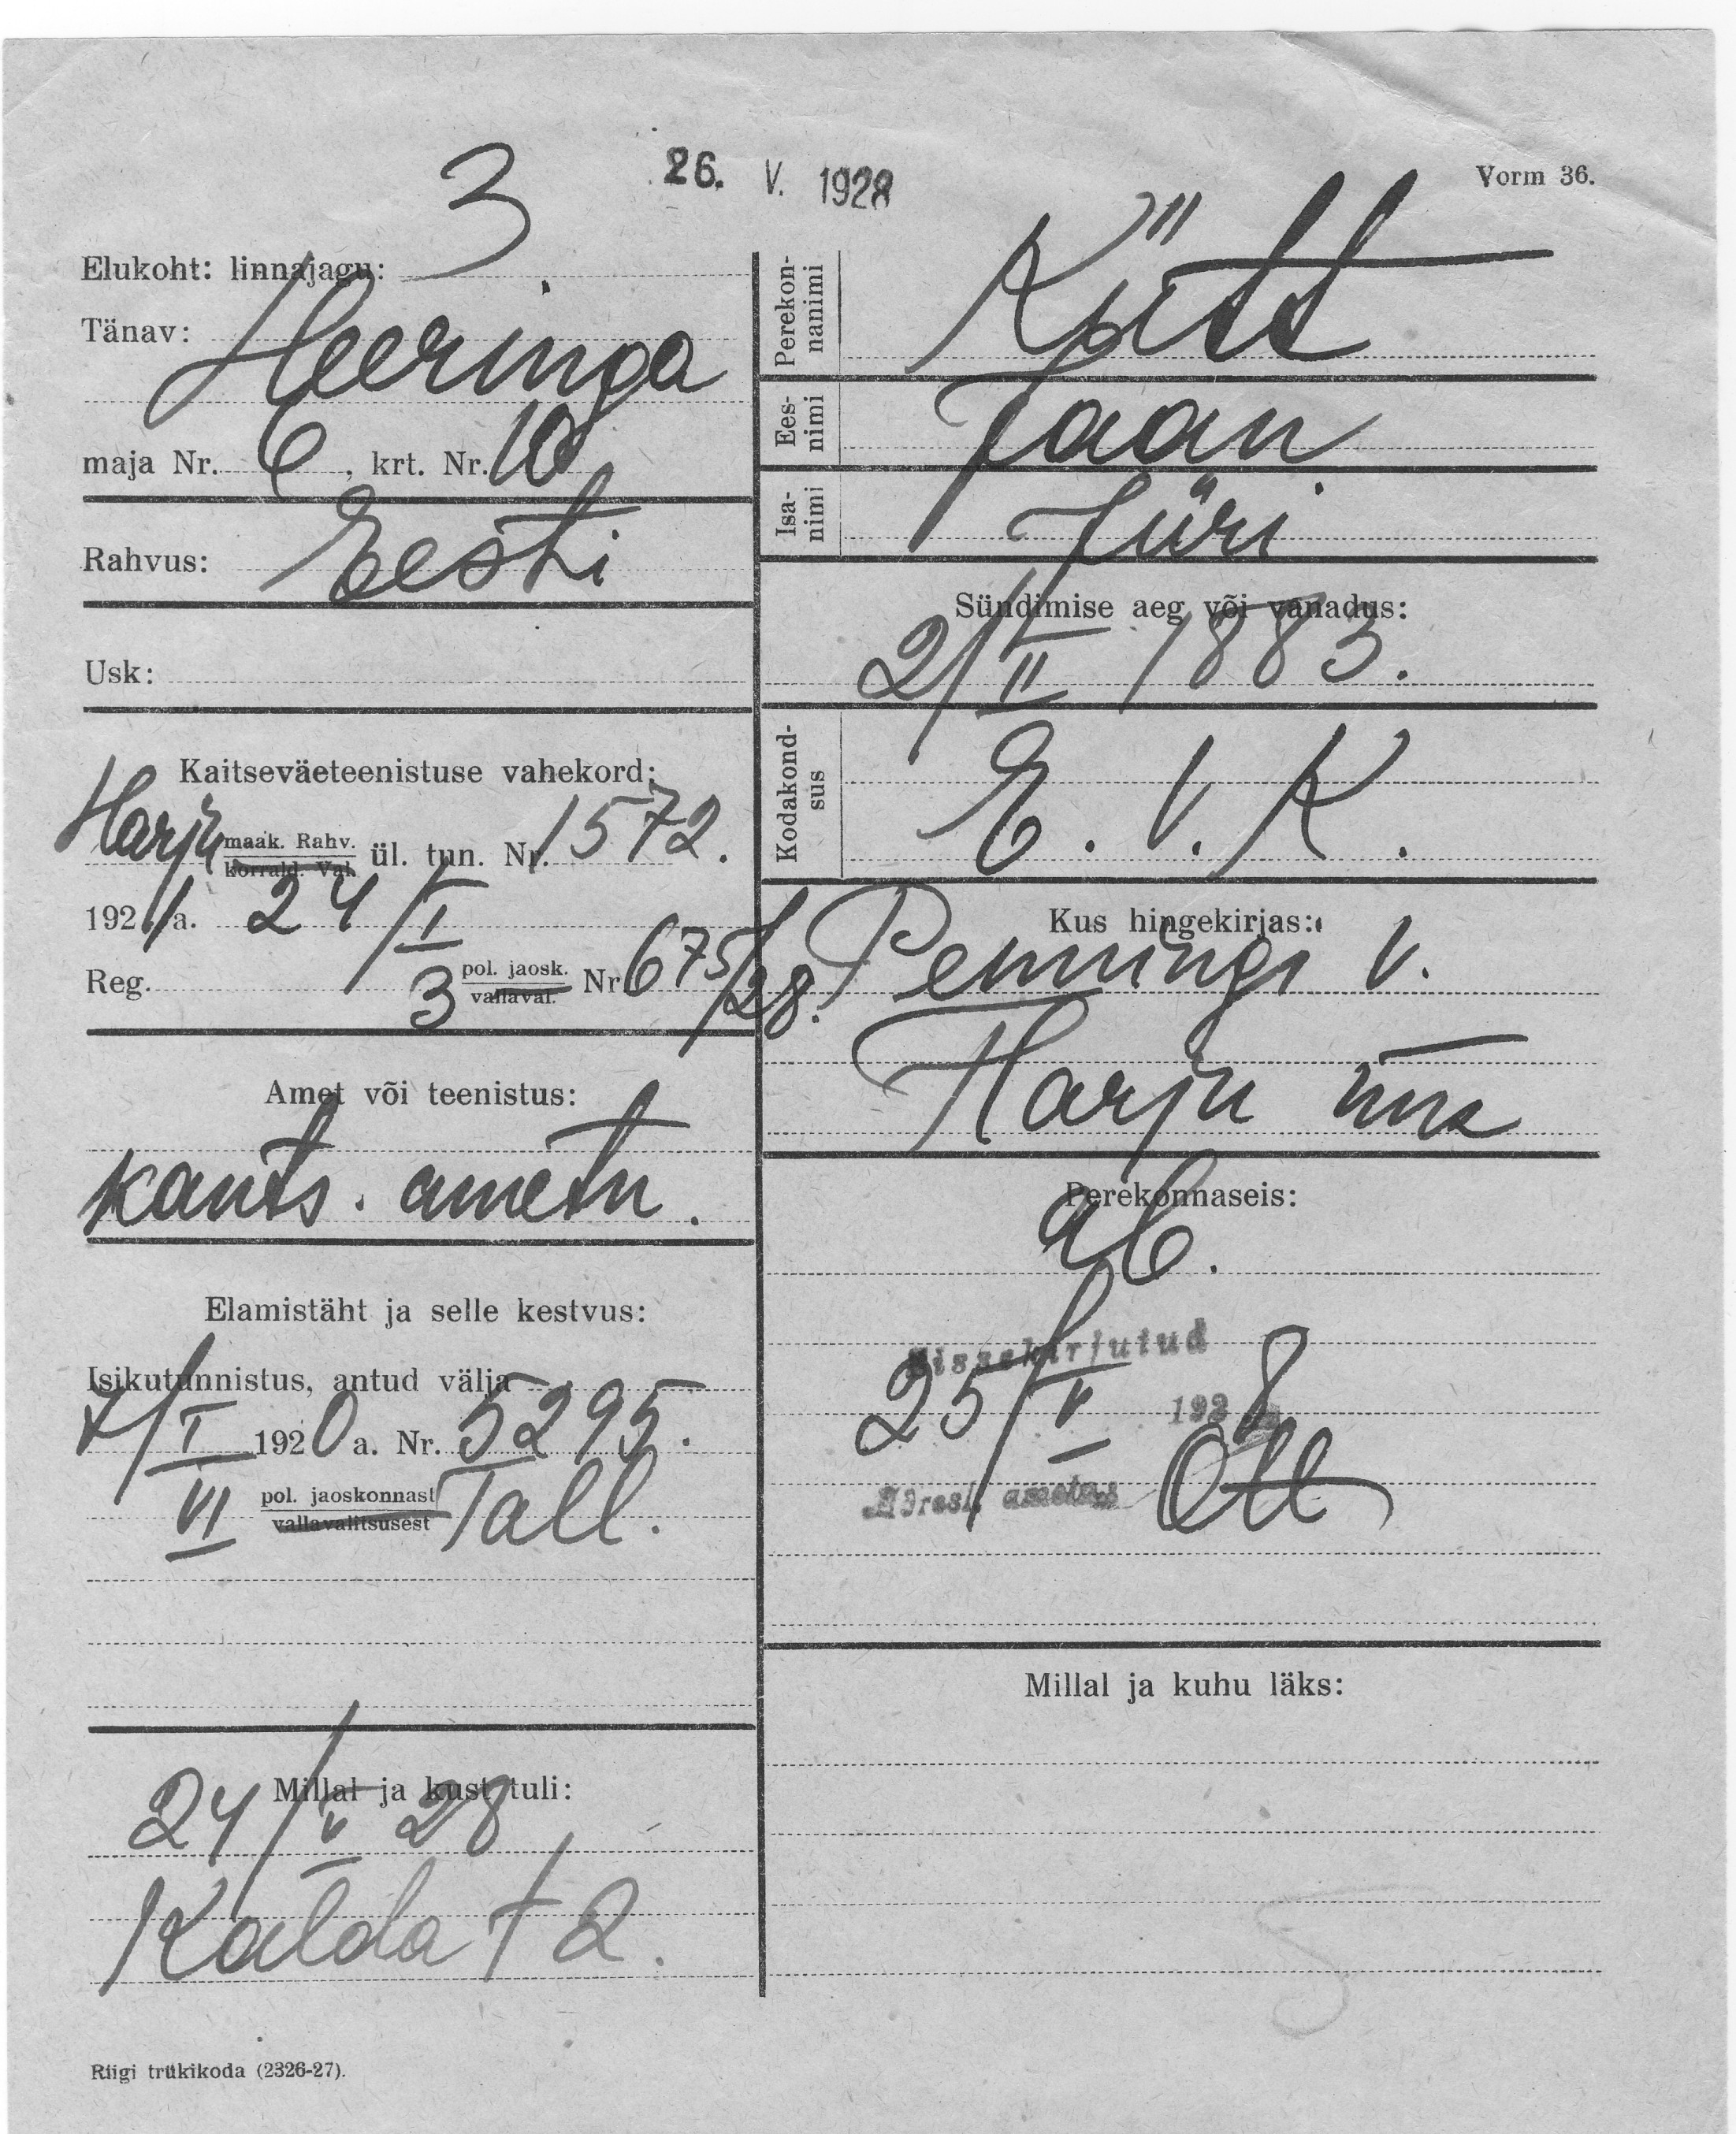 26. V. 1928
Vorm 36.
Elukoht: linnajagu: 3
Tänav: Heeringa
maja Nr. 6, krt. Nr. 10
Rahvus: Eesti
Usk:
Kaitseväeteenistuse vahekord:
Harju maak. Rahv. korrald. Val. ül. tun. Nr. 1572.
1921 a. 24/I
Reg. 3 pol. jaosk. vallaval. Nr 675/28.
Amet või teenistus:
kants. ametn.
Elamistäht ja selle kestvus:
Isikutunnistus, antud välja
7/I 1920 a. Nr. 5295.
VI pol. jaoskonnast vallavalitsusest Tall.
Millal ja kust tuli:
24/V 28
Kalda t 2.
Riigi trükikoda (2326-27).
Perekonnanimi Kütt
Eesnimi Jaan
Isanimi Jüri
Sündimise aeg või vanadus:
2/II 1883.
Kodakondsus E. V. K.
Kus hingekirjas:
Penningi v.
Harju mk
Perekonnaseis:
ab.
Sissekirjutud
25/V 1928
Adresl. ametnik Ott
Millal ja kuhu läks: